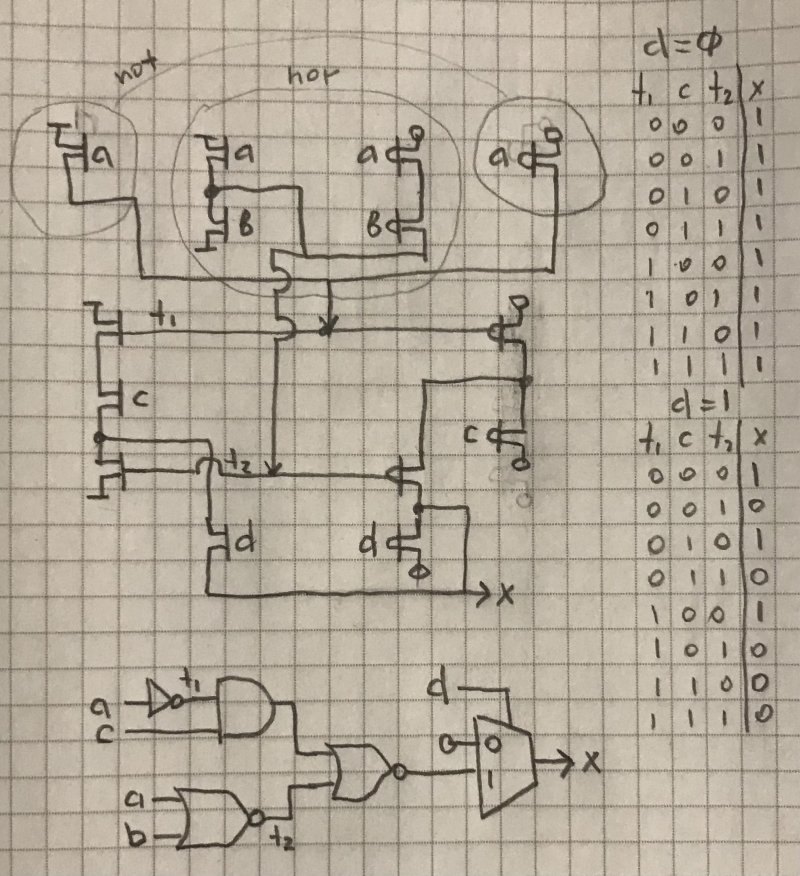 not
nor
a
a
B
a
B
a
t₁
c
t₂
d
c
d
X
a
c
t₁
a
b
t₂
d
0
1
X
d=0
t₁ c t₂ X
0 0 0 1
0 0 1 1
0 1 0 1
0 1 1 1
1 0 0 1
1 0 1 1
1 1 0 1
1 1 1 1
d=1
t₁ c t₂ X
0 0 0 1
0 0 1 0
0 1 0 1
0 1 1 0
1 0 0 1
1 0 1 0
1 1 0 0
1 1 1 0